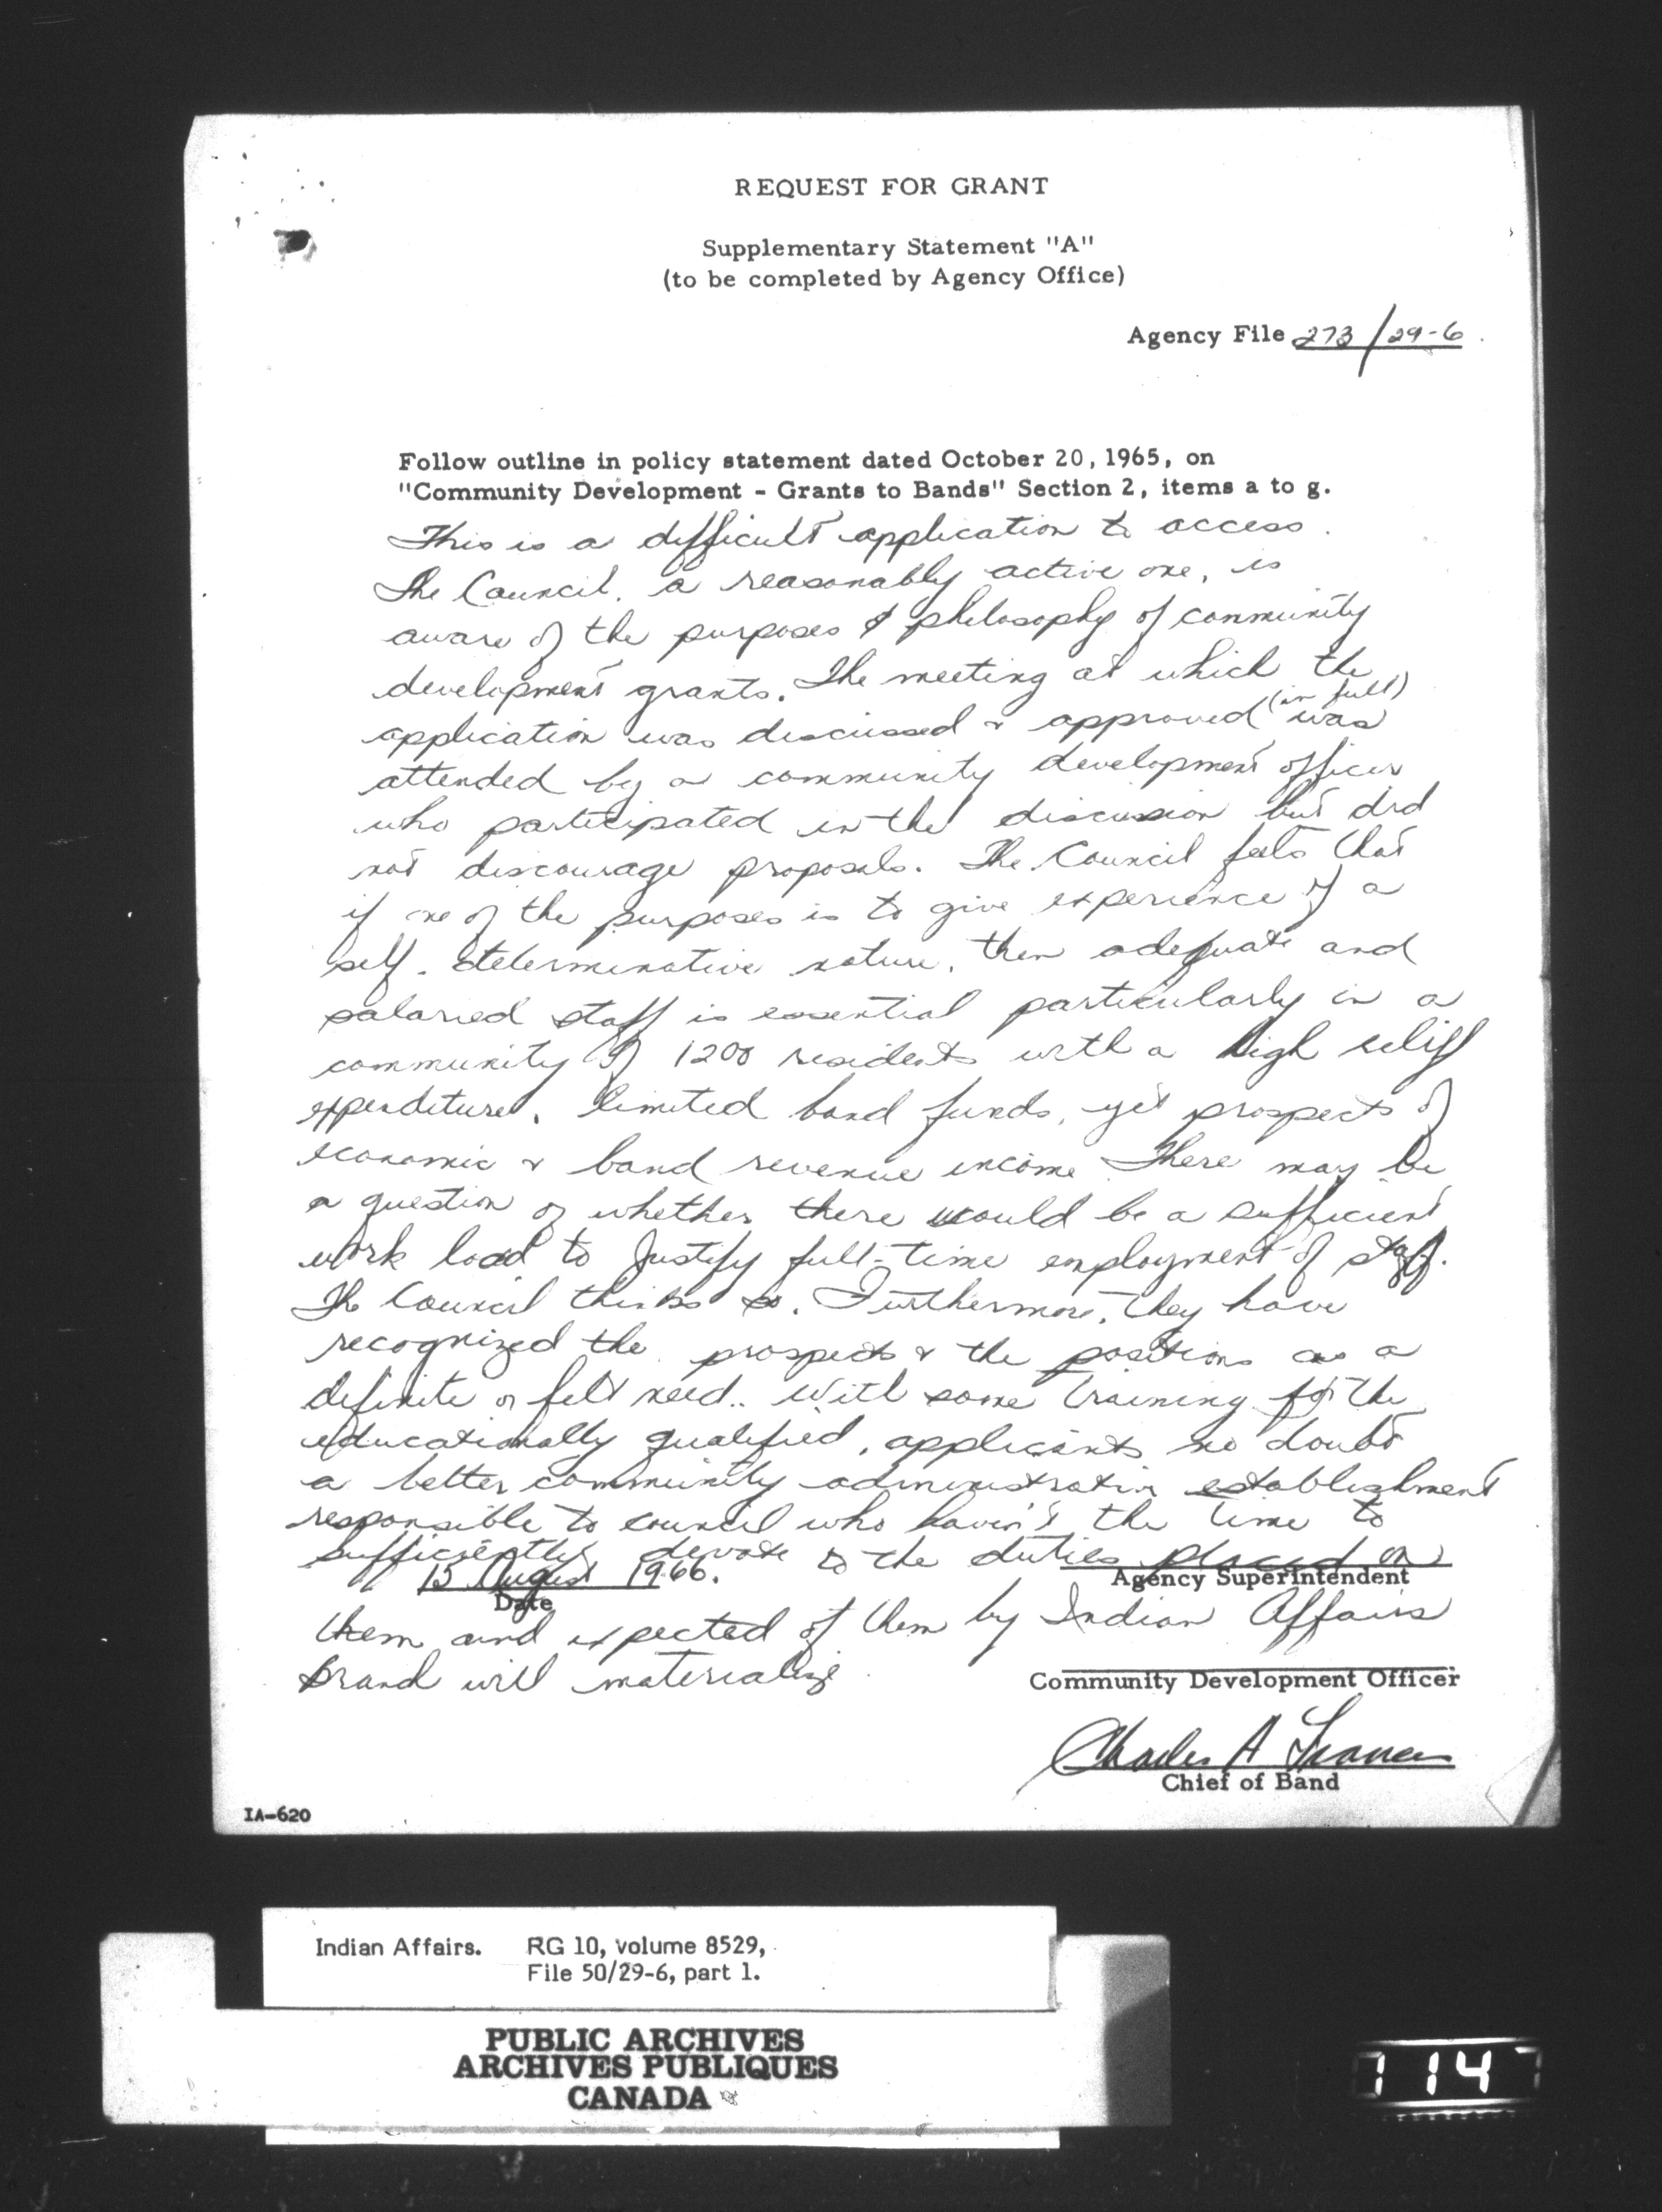 REQUEST FOR GRANT
Supplementary Statement "A"
(to be completed by Agency Office)
Agency File 273/29-6
Follow outline in policy statement dated October 20, 1965, on
"Community Development - Grants to Bands" Section 2, items a to g.
This is a difficult application to access.
The Council, a reasonably active one, is
aware of the purposes & philosophy of community
development grants. The meeting at which the
application was discussed & approved (in full) was
attended by a community development officer
who participated in the discussion but did
not discourage proposals. The Council feels that
if one of the purposes is to give experience of a
self-determinative nature, then adequate and
salaried staff is essential particularly in a
community of 1200 residents with a high relief
expenditure, limited band funds, yet prospects of
economic & band revenue income. There may be
a question of whether there would be a sufficient
work load to justify full-time employment of staff.
The Council thinks so. Furthermore, they have
recognized the prospects & the positions as a
definite or felt need. With some training for the
educationally qualified, applicants no doubt
a better community administration establishment
responsible to council who haven't the time to
sufficiently devote to the duties placed on
15 August 1966.
Date
Agency Superintendent
them and expected of them by Indian Affairs
Brand will materialize
Community Development Officer
Charles A Francis
Chief of Band
IA-620
Indian Affairs. RG 10, volume 8529,
File 50/29-6, part 1.
PUBLIC ARCHIVES
ARCHIVES PUBLIQUES
CANADA
114